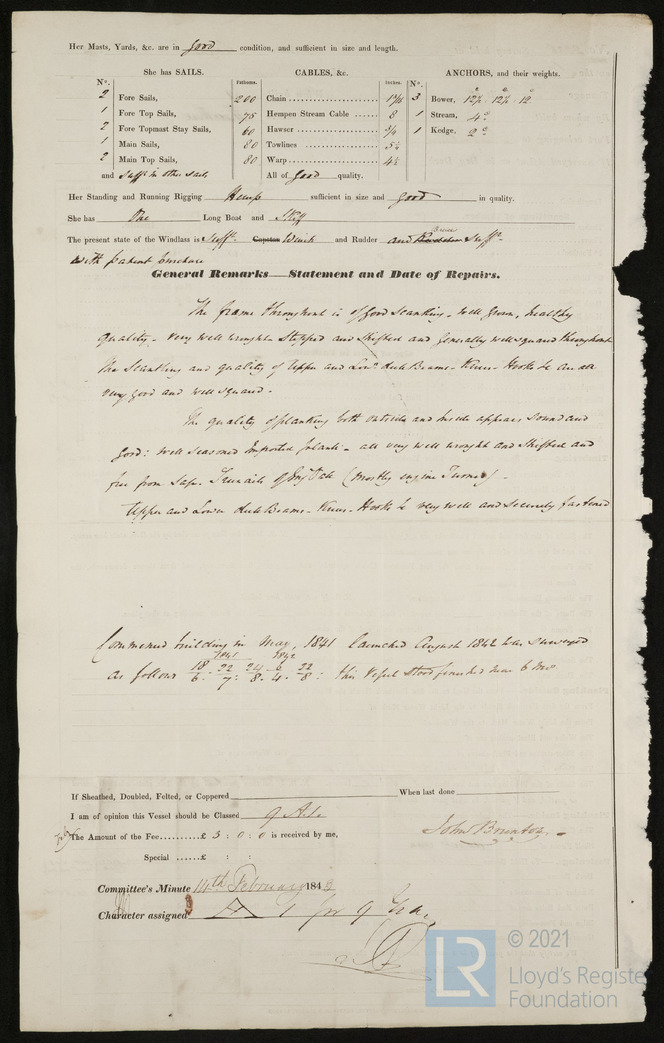 Her Masts, Yards, &c. are in good condition, and sufficient in size and length.
She has SAILS.
N°.
2 Fore Sails,
1 Fore Top Sails,
2 Fore Topmast Stay Sails,
1 Main Sails,
2 Main Top Sails,
and Sufft in other sails
CABLES, &c.
Fathoms. Inches.
200 Chain 1 5/16
75 Hempen Stream Cable 8
60 Hawser
80 Towlines
80 Warp
All of good quality.
ANCHORS, and their weights.
N°.
3 Bower, 12½ 12½ 12
1 Stream, 4
1 Kedge, 2
Her Standing and Running Rigging Hemp sufficient in size and good in quality.
She has One Long Boat and Skiff
The present state of the Windlass is Sufft. Capstan Winch and Rudder and Sufft.
with patent purchase
General Remarks—Statement and Date of Repairs.
The frame throughout is of good scantling - well grown, healthy
quality - very well wrought - Stepped and Shifted and generally well squared throughout
The Scantling and quality of Upper and Lower Deck Beams - Knees - Hooks &c are all
very good and well squared.
The quality of planking both outside and inside appears sound and
good: well seasoned Imported plank - all very well wrought and Shifted and
free from Sap. Treenails of Eng Oak (mostly engine Turned) -
Upper and Lower Deck Beams - Knees - Hooks &c very well and securely fastened
Commenced building in May, 1841 launched August 1842 was surveyed
1841 1842
as follows 18/6 - 22/7 - 24/8 - 6/4 - 22/8 : this Vessel Stood near 6 mos
If Sheathed, Doubled, Felted, or Coppered When last done
I am of opinion this Vessel should be Classed 9 A.1.
The Amount of the Fee £ 3 : 0 : 0 is received by me,
John Brunton
Special £ : :
Committee's Minute 14th February 1843
Character assigned A 1 for 9 Yrs.
LR
© 2021
Lloyd's Register
Foundation